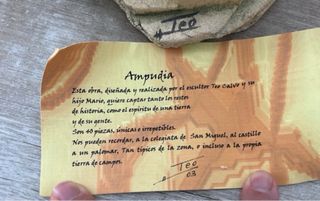 Teo
Ampudia
Esta obra, diseñada y realizada por el escultor Teo Calvo y su
hijo Mario, quiere captar tanto los restos
de historia, como el espíritu de una tierra
y de su gente.
Son 40 piezas, únicas e irrepetibles.
Nos pueden recordar, a la colegiata de San Miguel, al castillo
a un palomar, Tan típicos de la zona, o incluso a la propia
tierra de campos.
Teo
03